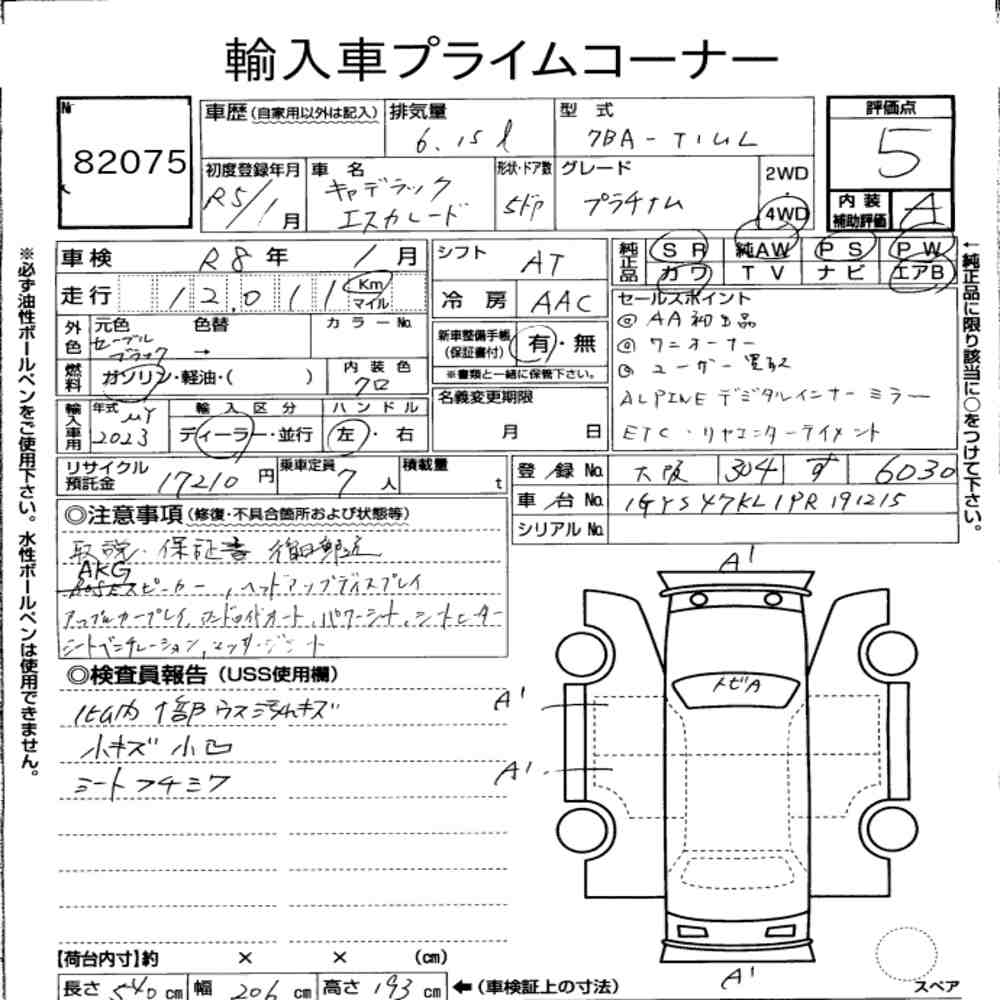 輸入車プライムコーナー
№
82075
車歴(自家用以外は記入)
排気量
6.15 ℓ
型式
7BA-T1UL
評価点
5
初度登録年月
R5/1月
車名
キャデラック
エスカレード
形状・ドア数
5ドア
グレード
プラチナム
2WD
・
4WD
内装
補助評価
A
車検 R8年 1月
シフト AT
純正品
SR 純AW PS PW
カワ TV ナビ エアB
走行 12,011 Km
マイル
冷房 AAC
セールスポイント
◎ AA初出品
◎ ワンオーナー
◎ ユーザー買取
ALPINE デジタルインナーミラー
ETC・リヤエンターテイメント
外色
元色 色替 カラーNo.
セーブル
ブラック →
新車整備手帳
(保証書付) 有・無
※書類と一緒に保管下さい。
燃料 ガソリン・軽油・( )
内装色
クロ
名義変更期限
月 日
輸入車用
年式 MY
2023
輸入区分
ディーラー・並行
ハンドル
左・右
リサイクル
預託金 17210円
乗車定員 7人
積載量 t
登録No. 大阪 304 す 6030
車台No. 1GYS47KL1PR191215
シリアルNo.
◎注意事項(修復・不具合箇所および状態等)
取説・保証書 後日郵送
AKG
スピーカー, ヘッドアップディスプレイ
アップルカープレイ, アンドロイドオート, パワーシート, シートヒーター
シートベンチレーション,
◎検査員報告(USS使用欄)
小キズ 小凹
シートフチミワ
A'
トビA
A'
A'
A'
スペア
【荷台内寸】約 × × (cm)
長さ 540 cm 幅 206 cm 高さ 193 cm ←(車検証上の寸法)
※必ず油性ボールペンをご使用下さい。水性ボールペンは使用できません。
←純正品に限り該当に○をつけて下さい。